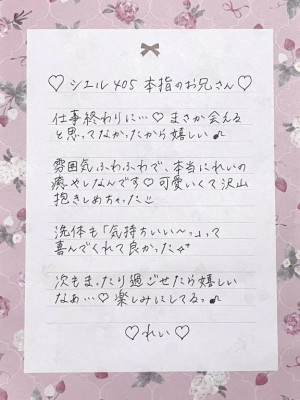 ♡シエル405 本指のお兄さん♡
仕事終わりに…♡まさか会える
と思ってなかったから嬉しい♪
雰囲気ふわふわで、本当にれいの
癒やしなんです♡可愛いくて沢山
抱きしめちゃた
洗体も「気持ちいい〜っ」って
喜んでくれて良かった
次もまったり過ごせたら嬉しい
なぁ…♡楽しみにしてるっ♪
♡れい♡